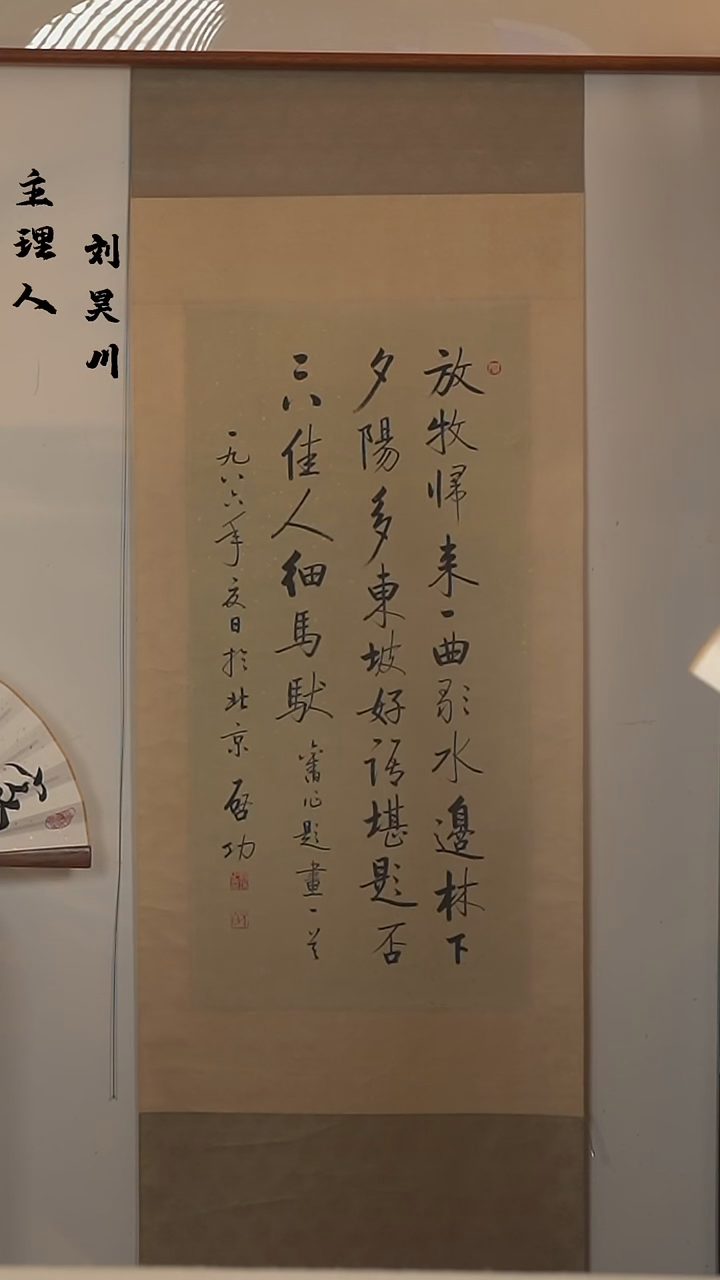 主理人
刘昊川
放牧归来一曲歌水邊林下
夕陽多東坡好話堪題否
二八佳人細馬馱 舊作題畫一首
一九八六年夏日於北京 啓功